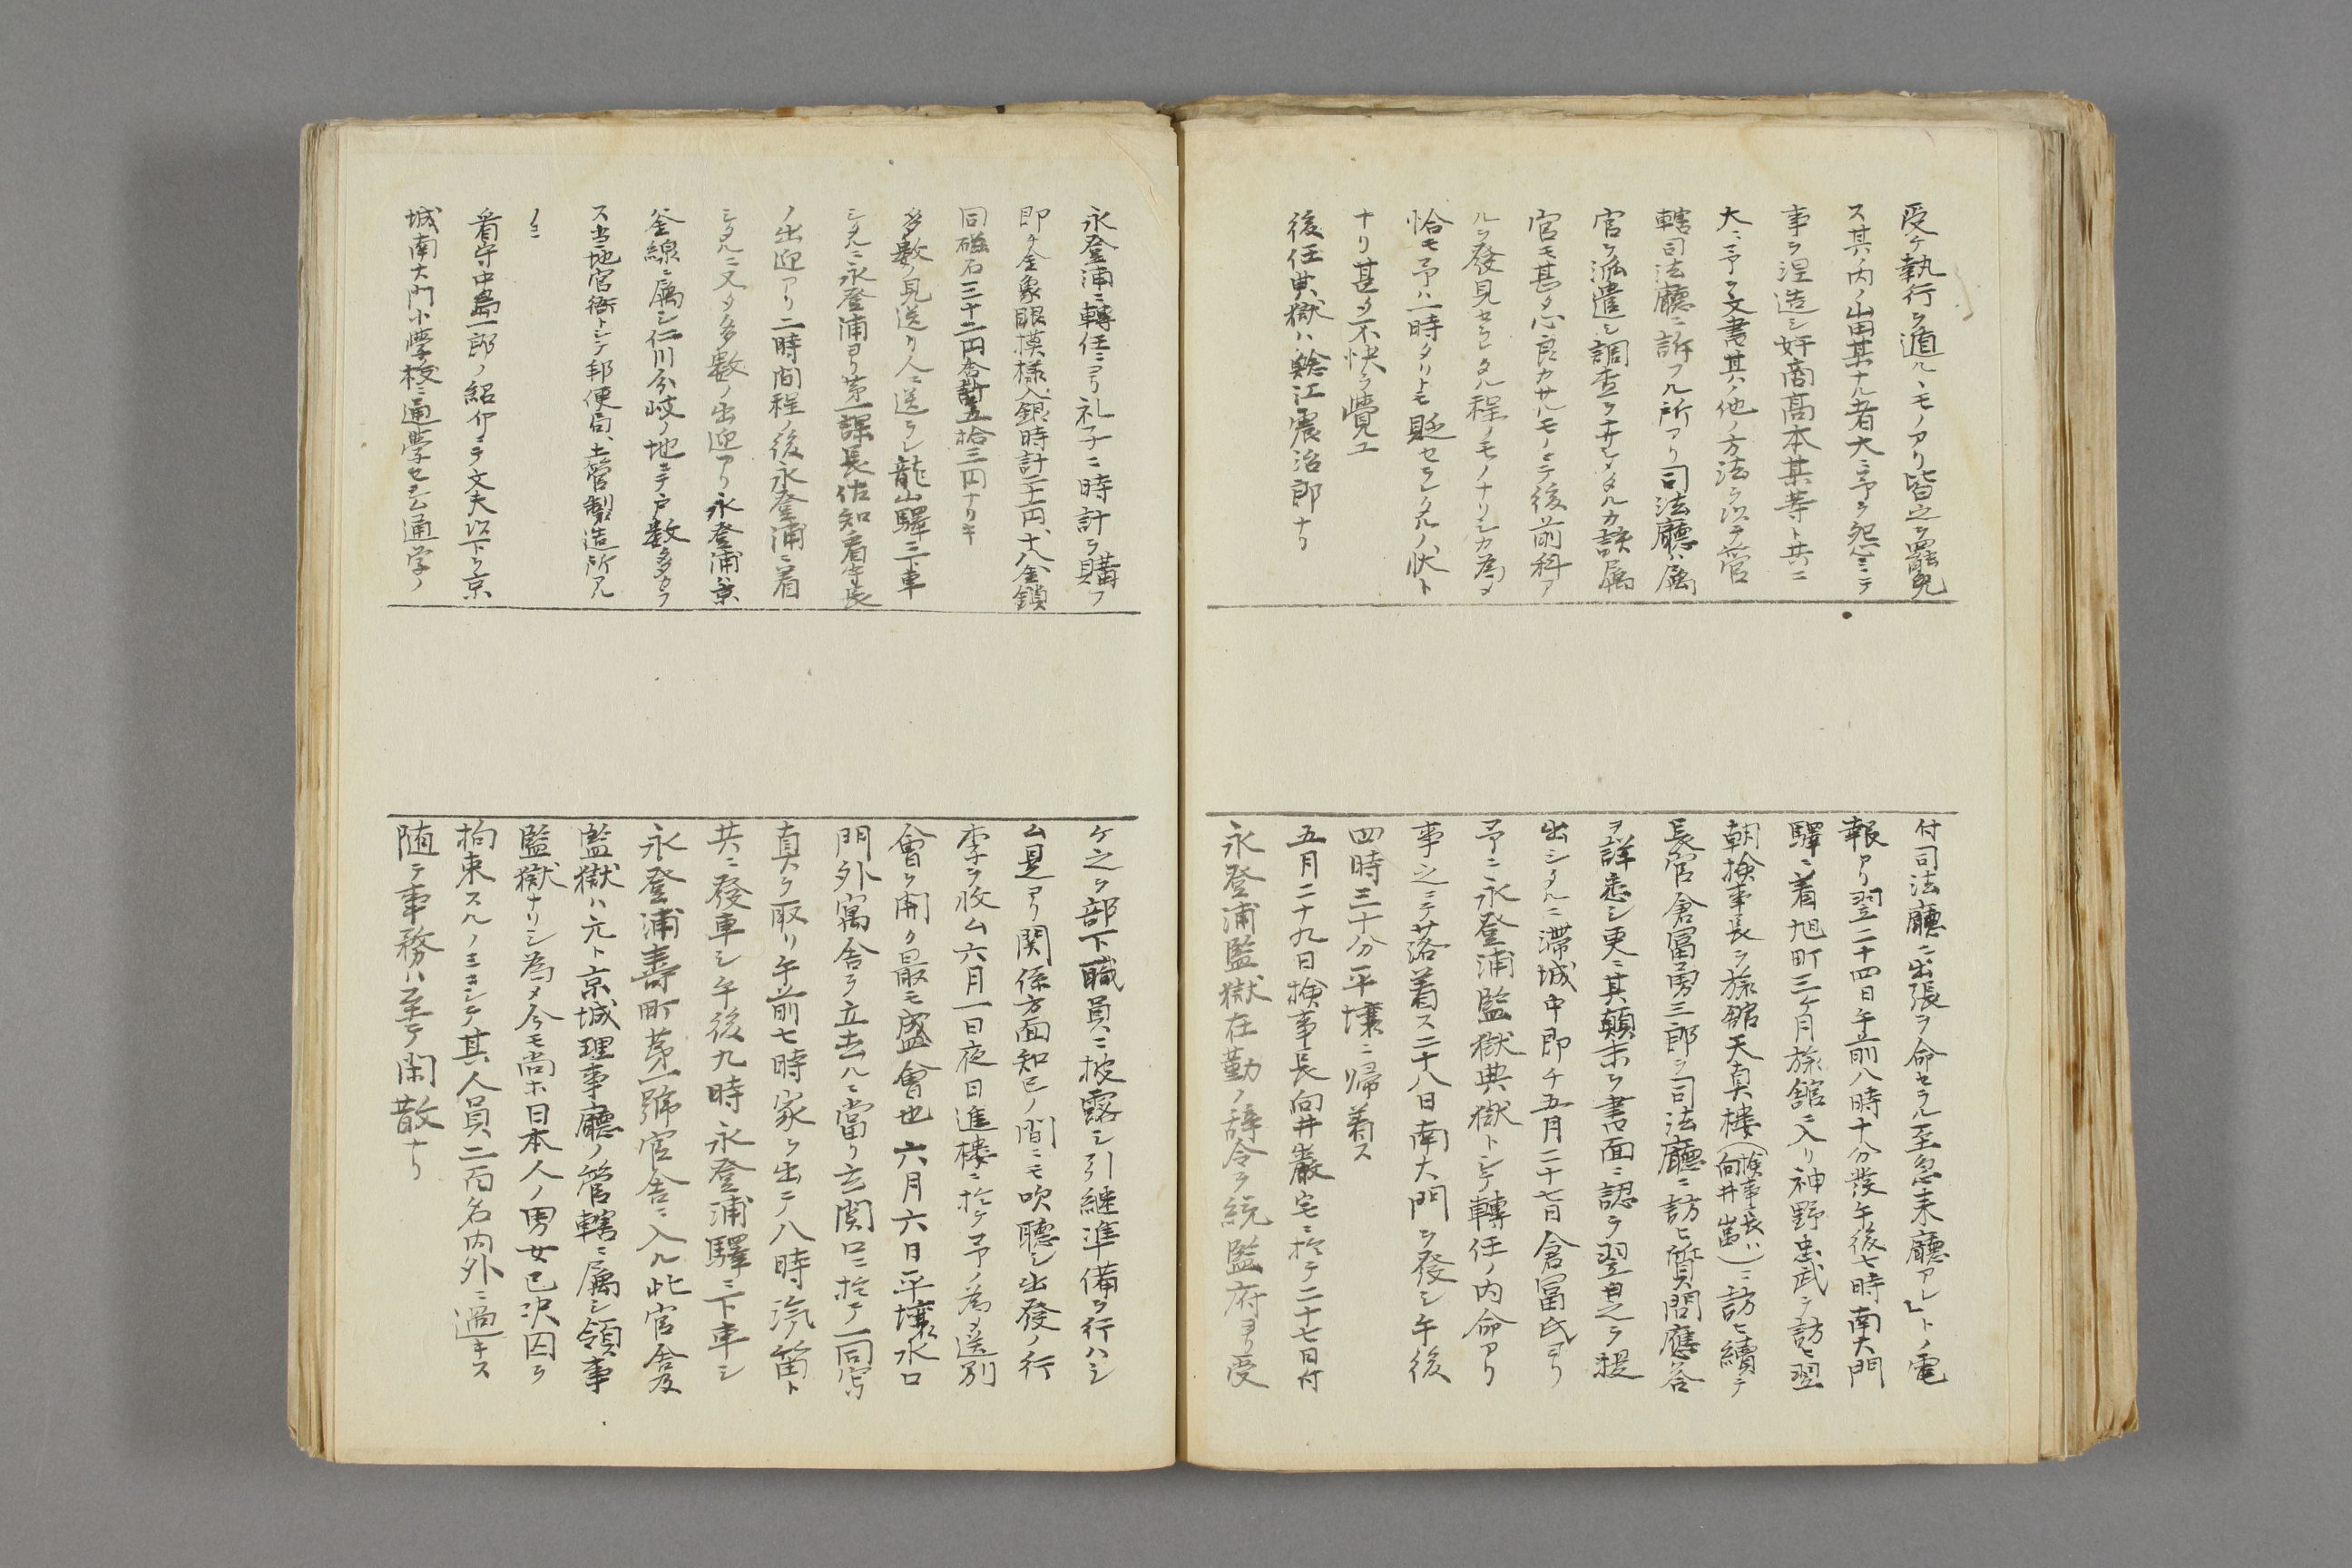 受ケ執行ヲ遁ルヽモノアリ皆之ヲ罷免
ス其ノ内ノ山田某ナル者大ニ予ヲ怨ミテ
事ヲ涅造シ奸商髙本某等ト共ニ
大ニ予ヲ文書其ノ他ノ方法ヲ以テ管
轄司法廳ニ訴フル所アリ司法廳ハ属
官ヲ派遣シ調査ヲナサシメタルカ該属
官モ甚タ心良カサルモノニテ後前科ア
ルヲ發見セラレタル程ノモノナリシカ為メ
恰モ予ハ一時タリトモ貶セラレタルノ状ト
ナリ甚タ不快ヲ覺エ
後任典獄ハ鯰江震治郎ナリ
付司法廳ニ出張ヲ命セラル至急来廳アレ」トノ電
報アリ翌二十四日午前八時十分發午後七時南大門
驛ニ着旭町三ケ月旅舘ニ入リ神野忠武ヲ訪ヒ翌
朝検事長ヲ旅舘天真楼(検事長ハ向井巌)ニ訪ヒ續テ
長官倉冨勇三郎ヲ司法廳ニ訪ヒ質問應答
ヲ詳悉シ更ニ其顛末ヲ書面ニ認ヲ翌日之ヲ提
出シタルニ滞城中即チ五月二十七日倉冨氏ヨリ
予ニ永登浦監獄典獄トシテ轉任ノ内命アリ
事之ニテ落着ス二十八日南大門ヲ發シ午後
四時三十分平壌ニ帰着ス
五月二十九日検事長向井巌宅ニ於テ二十七日付
永登浦監獄在勤ノ辞令ヲ統監府ヨリ受
永登浦ニ轉任ニヨリ礼子ニ時計ヲ購フ
即チ金象眼模様入銀時計二十一円、十八金鎖
同磁石三十二円合計五拾三円ナリキ
多數ノ見送リ人ニ送ラレ龍山驛ニ下車
シタルニ永登浦ヨリ第一課長佐知看守長
ノ出迎アリ二時間程ノ後永登浦ニ着
シタルニ又タ多數ノ出迎アリ永登浦ハ京
釜線ニ属シ仁川分岐ノ地ニテ戸数多カラ
ス当地官衙トシテ郵便局、土管製造所アル
ノミ
看守中島一郎ノ紹介ニテ文夫以下ヲ京
城南大門小學校ニ通學セシム通学ノ
ケ之ヲ部下職員ニ披露シ引継準備ヲ行ハシ
ム是ヨリ関係方面知已ノ間ニモ吹聴シ出發ノ行
李ヲ收ム六月一日夜日進樓ニ於ケ予ノ為メ送別
會ヲ開ク最モ盛會也六月六日平壌水口
門外寓舎ヲ立去ルニ當リ玄関口ニ於テ一同写
真ヲ取リ午前七時家ヲ出テ八時汽笛ト
共ニ發車シ午後九時永登浦驛ニ下車シ
永登浦壽町第一號官舎ニ入ル此官舎及
監獄ハ元ト京城理事廳ノ管轄ニ属シ領事
監獄ナリシ為メ今モ尚ホ日本人ノ男女已決囚ヲ
拘束スルノミニシテ其人員二百名内外ニ過キス
随テ事務ハ至テ閑散ナリ